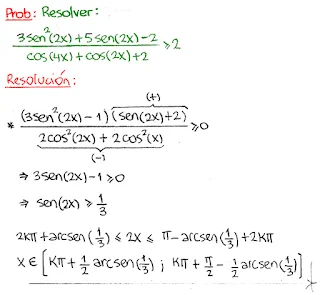 Prob: Resolver:
3sen²(2x)+5sen(2x)-2 / cos(4x)+cos(2x)+2 ⩾ 2
Resolución:
* (3sen²(2x)-1)(sen(2x)+2) / 2cos²(2x)+2cos²(x) ⩾ 0
(+)
(-)
⇒ 3sen(2x)-1 ⩾ 0
⇒ sen(2x) ⩾ 1/3
2kπ+arcsen(1/3) ⩽ 2x ⩽ π-arcsen(1/3)+2kπ
x ∈ [kπ+1/2 arcsen(1/3) ; kπ+π/2-1/2 arcsen(1/3)]